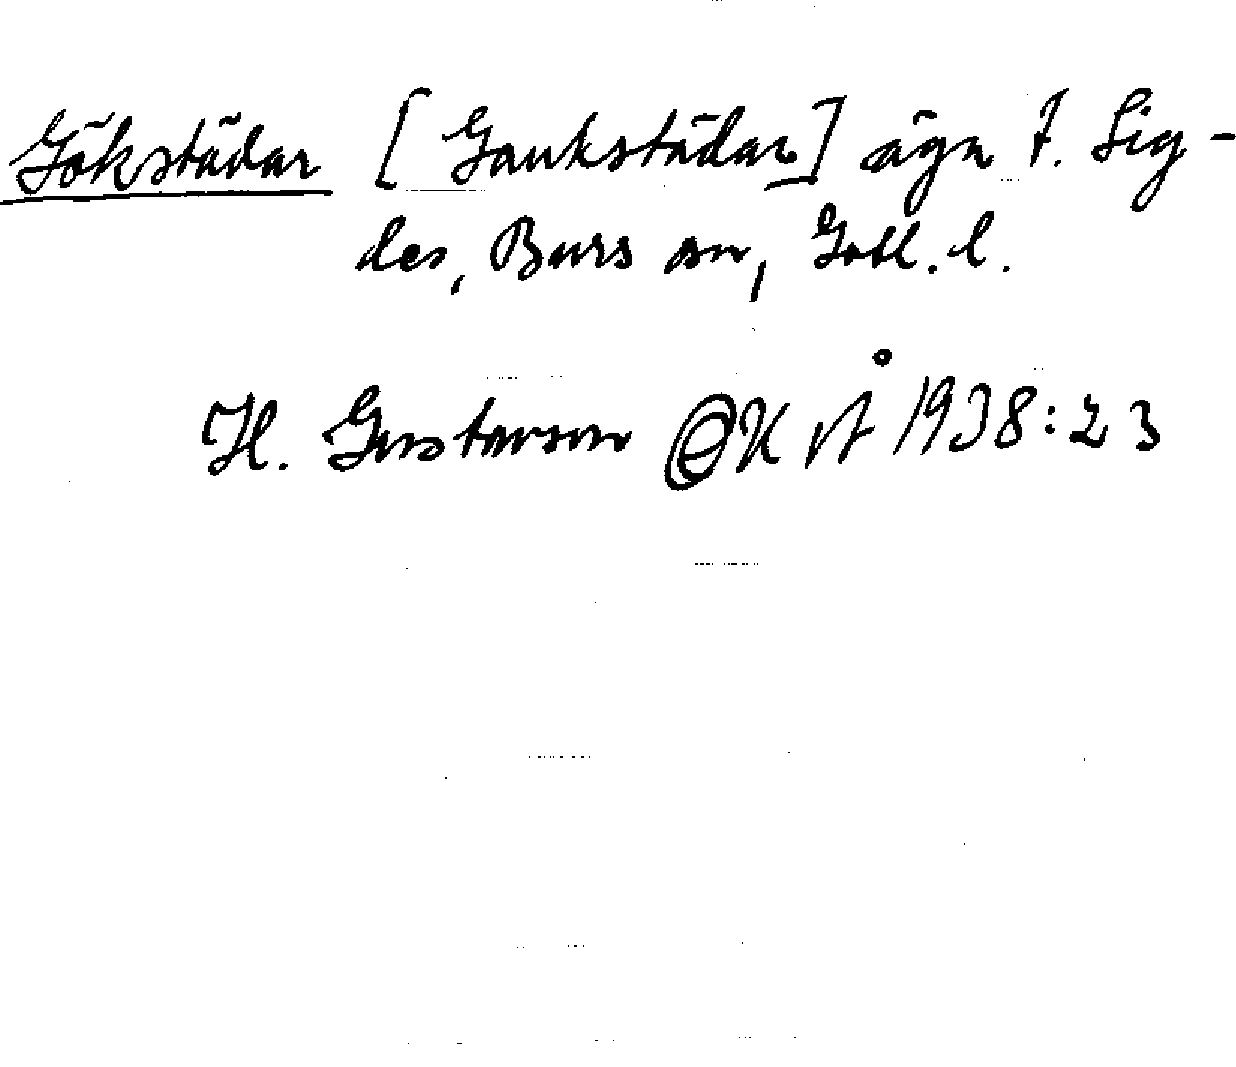 Gökstädar [Gaukstädar] ägn t. Sig-
des, Burs sn, Gotl. l.
H. Gustavson GK Å 1938:23